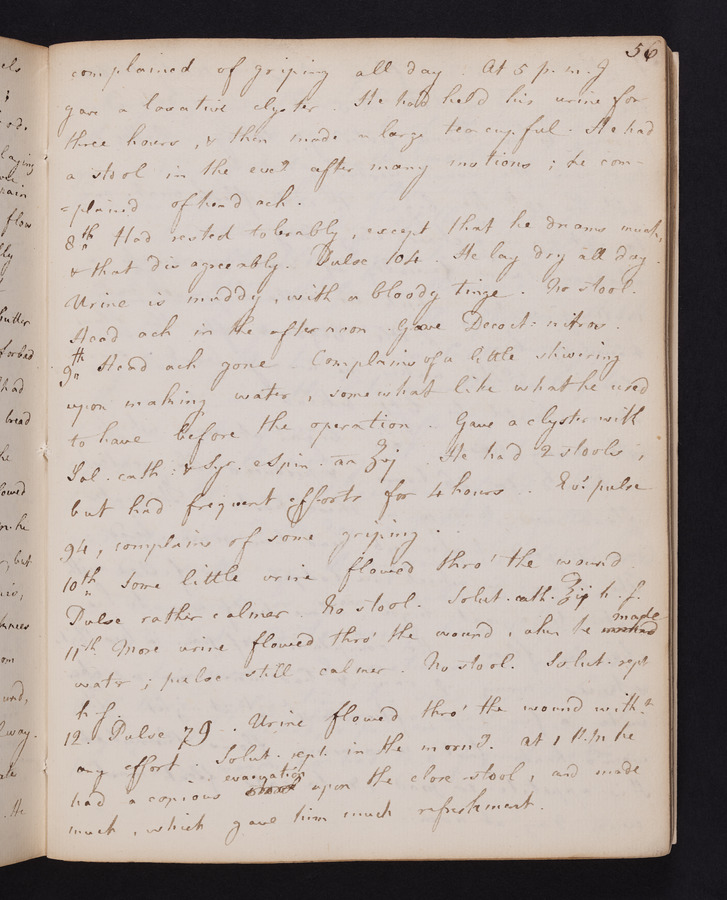 56
complained of griping all day. At 5 p.m. I
gave a laxative clyster. He had held his urine for
three hours, & then made a large tea cup full. He had
a stool in the eveg after many motions; he com-
=plained of head ach.
8th Had rested tolerably, except that he dreams much,
& that disagreeably. Pulse 104. He lay dry all day.
Urine is muddy, with a bloody tinge. No stool.
Head ach in the afternoon. Gave Decoct: nitros.
9th Head ach gone. Complains of a little shivering
upon making water, somewhat like what he used
to have before the operation. Gave a clyster with
Sal. cath: & Syr. e spin. āā ℥ij. He had 2 stools,
but had frequent efforts for 4 hours. Evg pulse
94, complains of some griping.
10th Some little urine flowed thro' the wound.
Pulse rather calmer. No stool. Solut. cath. ℥ij h.s.
11th More urine flowed thro' the wound, when he made
water; pulse still calmer. No stool. Solut. rept
h.s.
12. Pulse 79. Urine flowed thro' the wound witht
any effort. Solut. rept. in the morng. at 1 P.M he
had a copious evacuation upon the close-stool, and made
much, which gave him much refreshment.
els
;
laying
rain
flow
butter
forbad
had
bread
he
but
om
und,
way.
He